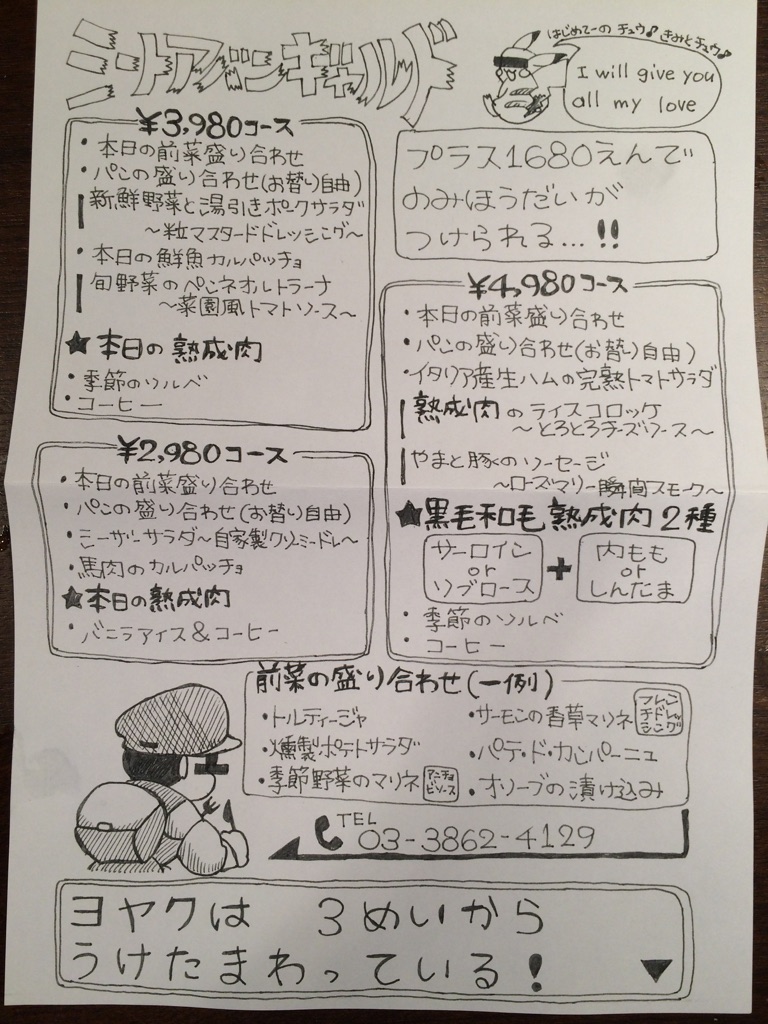 ミートアバンギャルド
はじめてーの チュウ♪ きみとチュウ♪
I will give you
all my love
¥3,980コース
・本日の前菜盛り合わせ
・パンの盛り合わせ(お替り自由)
新鮮野菜と湯引きポークサラダ
～粒マスタードドレッシング～
・本日の鮮魚カルパッチョ
旬野菜のペンネオルトラーナ
～菜園風トマトソース～
★本日の熟成肉
・季節のソルベ
・コーヒー
プラス1680えんで
のみほうだいが
つけられる…!!
¥4,980コース
・本日の前菜盛り合わせ
・パンの盛り合わせ(お替り自由)
・イタリア産生ハムの完熟トマトサラダ
熟成肉のライスコロッケ
～とろとろチーズソース～
やまと豚のソーセージ
～ローズマリー瞬間スモーク～
★黒毛和毛熟成肉2種
サーロイン
or
リブロース
+
内もも
or
しんたま
・季節のソルベ
・コーヒー
¥2,980コース
・本日の前菜盛り合わせ
・パンの盛り合わせ(お替り自由)
・シーザーサラダ～自家製クリーミードレ～
・馬肉のカルパッチョ
★本日の熟成肉
・バニラアイス&コーヒー
前菜の盛り合わせ(一例)
・トルティージャ
・燻製ポテトサラダ
・季節野菜のマリネ
アンチョ
ビソース
・サーモンの香草マリネ
フレン
チドレッ
シング
・パテ・ド・カンパーニュ
・オリーブの漬け込み
TEL
03-3862-4129
ヨヤクは 3めいから
うけたまわっている!